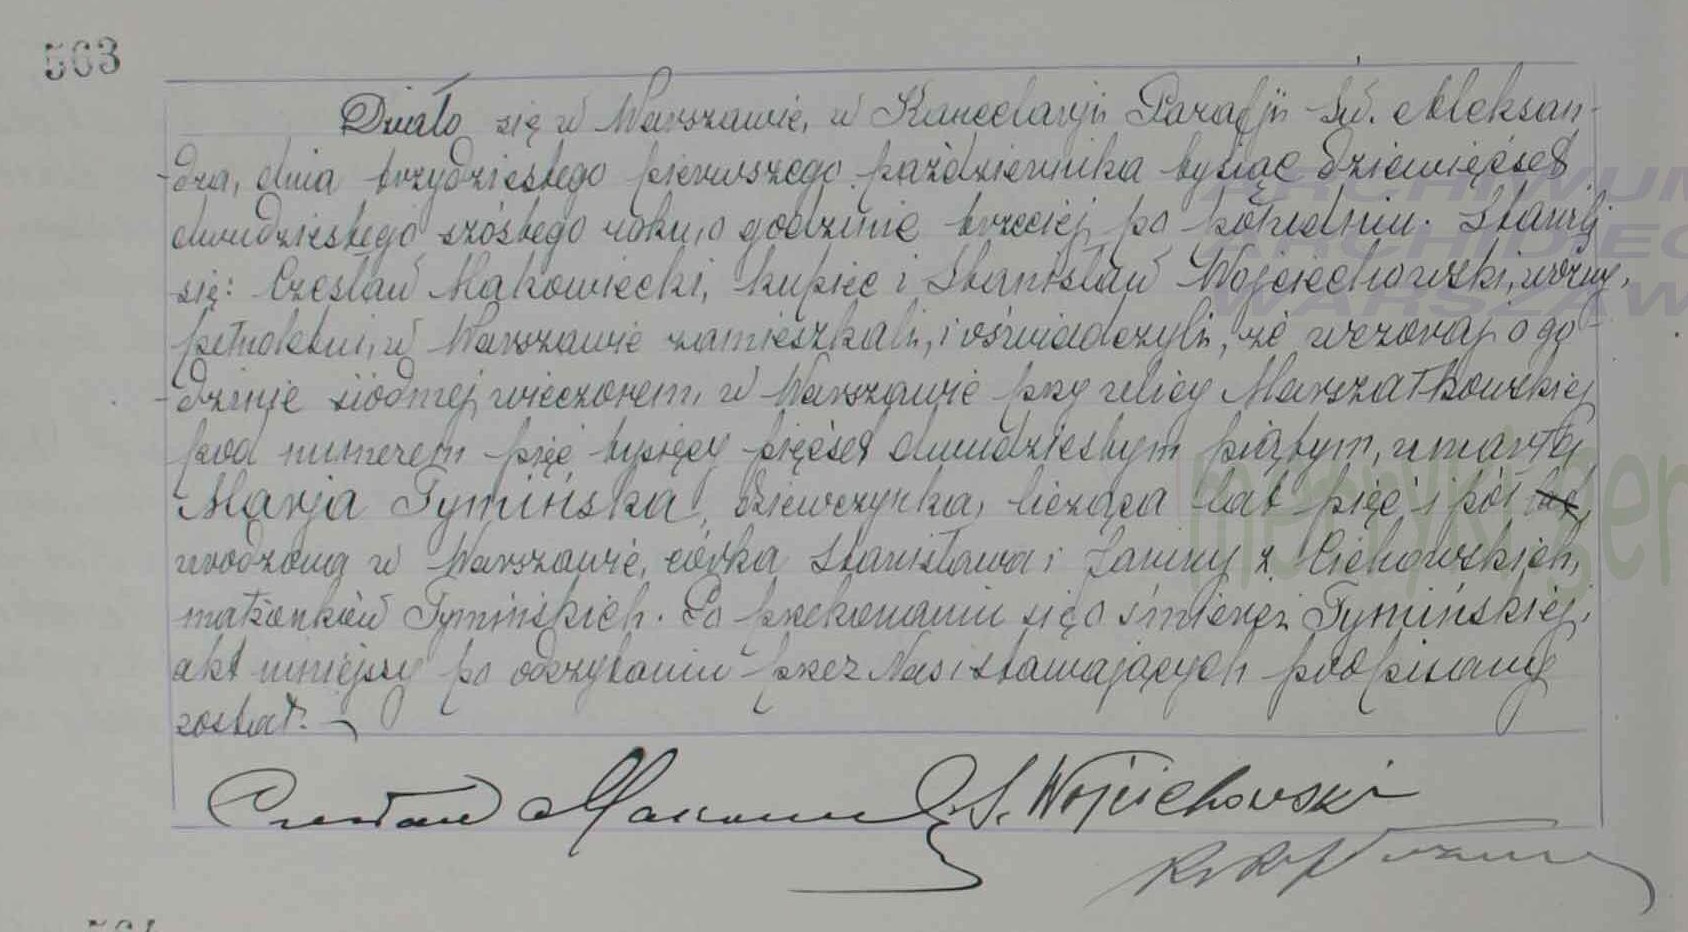 563
Działo się w Warszawie, w Kancelarji Parafji Św. Aleksan-
dra, dnia trzydziestego pierwszego października tysiąc dziewięćset
dwudziestego szóstego roku, o godzinie trzeciej po południu. Stawili
się: Czesław Makowiecki, kupiec i Stanisław Wojciechowski, woźny,
pełnoletni, w Warszawie zamieszkali, i oświadczyli, że wczoraj o go-
dzinie siódmej wieczorem, w Warszawie przy ulicy Marszałkowskiej
pod numerem pięć tysięcy pięćset dwudziestym piątym, umarła
Marja Tymińska, dziewczynka, licząca lat pięć i pół lat,
urodzona w Warszawie, córka Stanisława i Janiny z Cichowskich,
małżonków Tymińskich. Po przekonaniu się o śmierci Tymińskiej,
akt niniejszy po odczytaniu przez Nas i stawających podpisany
został.
Czesław Makowiecki S. Wojciechowski
ARCHIWUM
ARCHIDIEC
WARSZAW
metryki.gen